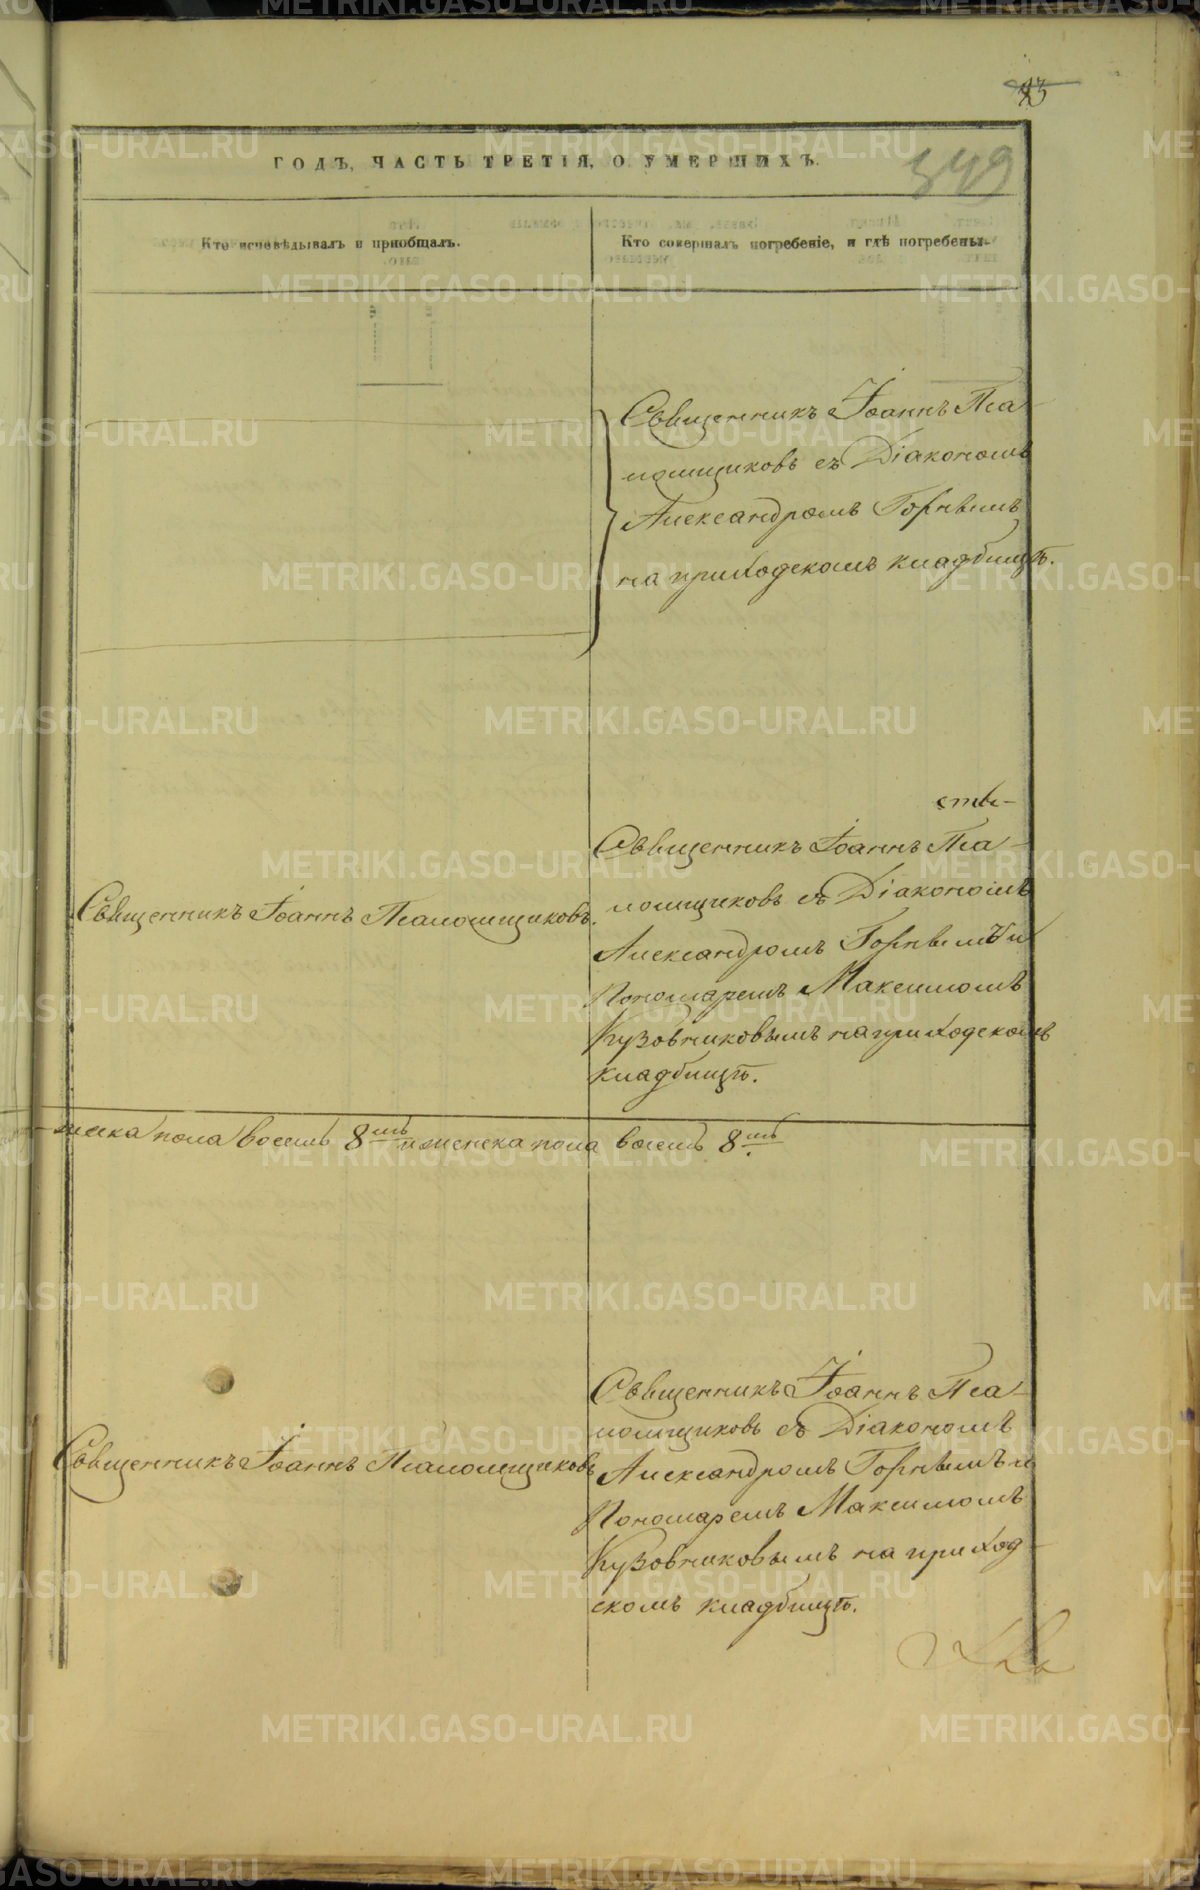 83
349
ГОДЪ, ЧАСТЬ ТРЕТІЯ, О УМЕРШИХЪ.
Кто исповѣдывалъ и пріобщалъ.
Кто совершалъ погребеніе, и гдѣ погребены.
Священникъ Іоаннъ Пса-
ломщиковъ съ Діакономъ
Александромъ Горнымъ
на приходскомъ кладбищѣ.
Священникъ Іоаннъ Псаломщиковъ.
Священникъ Іоаннъ Пса-
ломщиковъ съ Діакономъ
Александромъ Горнымъ и
Пономаремъ Максимомъ
Кузовниковымъ на приходскомъ
кладбищѣ.
жеска пола восемь 8мь и женска пола восемь 8мь.
Священникъ Іоаннъ Псаломщиковъ
Священникъ Іоаннъ Пса-
ломщиковъ съ Діакономъ
Александромъ Горнымъ и
Пономаремъ Максимомъ
Кузовниковымъ на приход-
скомъ кладбищѣ.
METRIKI.GASO-URAL.RU